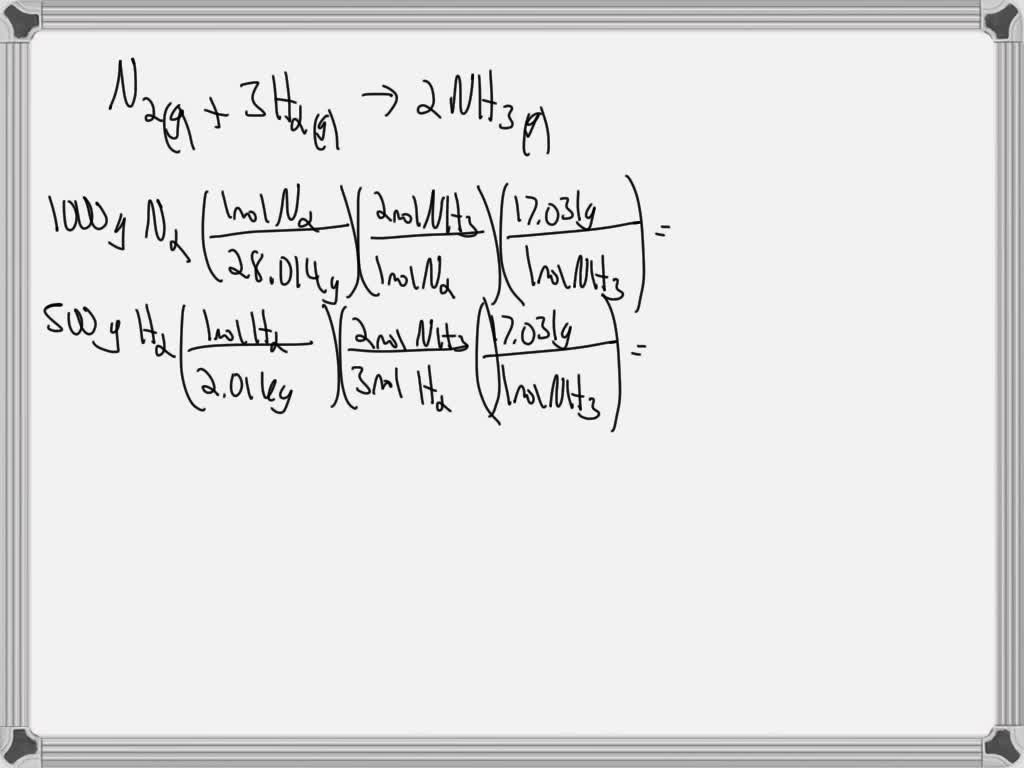 N₂(g) + 3H₂(g) → 2NH₃(g)
1000g N₂ (1mol N₂ / 28.014g)(2mol NH₃ / 1mol N₂)(17.031g / 1mol NH₃) =
500g H₂ (1mol H₂ / 2.016g)(2mol NH₃ / 3mol H₂)(17.031g / 1mol NH₃) =